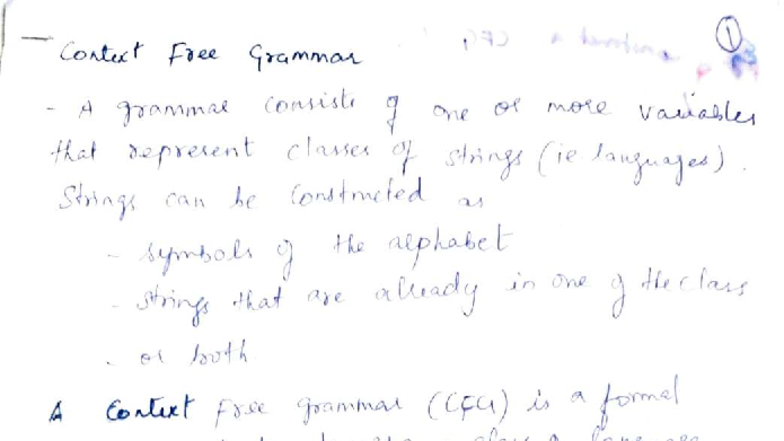 ①
Context Free Grammar
- A grammar consists of one or more variables
that represent classes of strings (ie languages).
Strings can be constructed as
- symbols of the alphabet
- strings that are already in one of the class
- or both
A Context Free grammar (CFG) is a formal